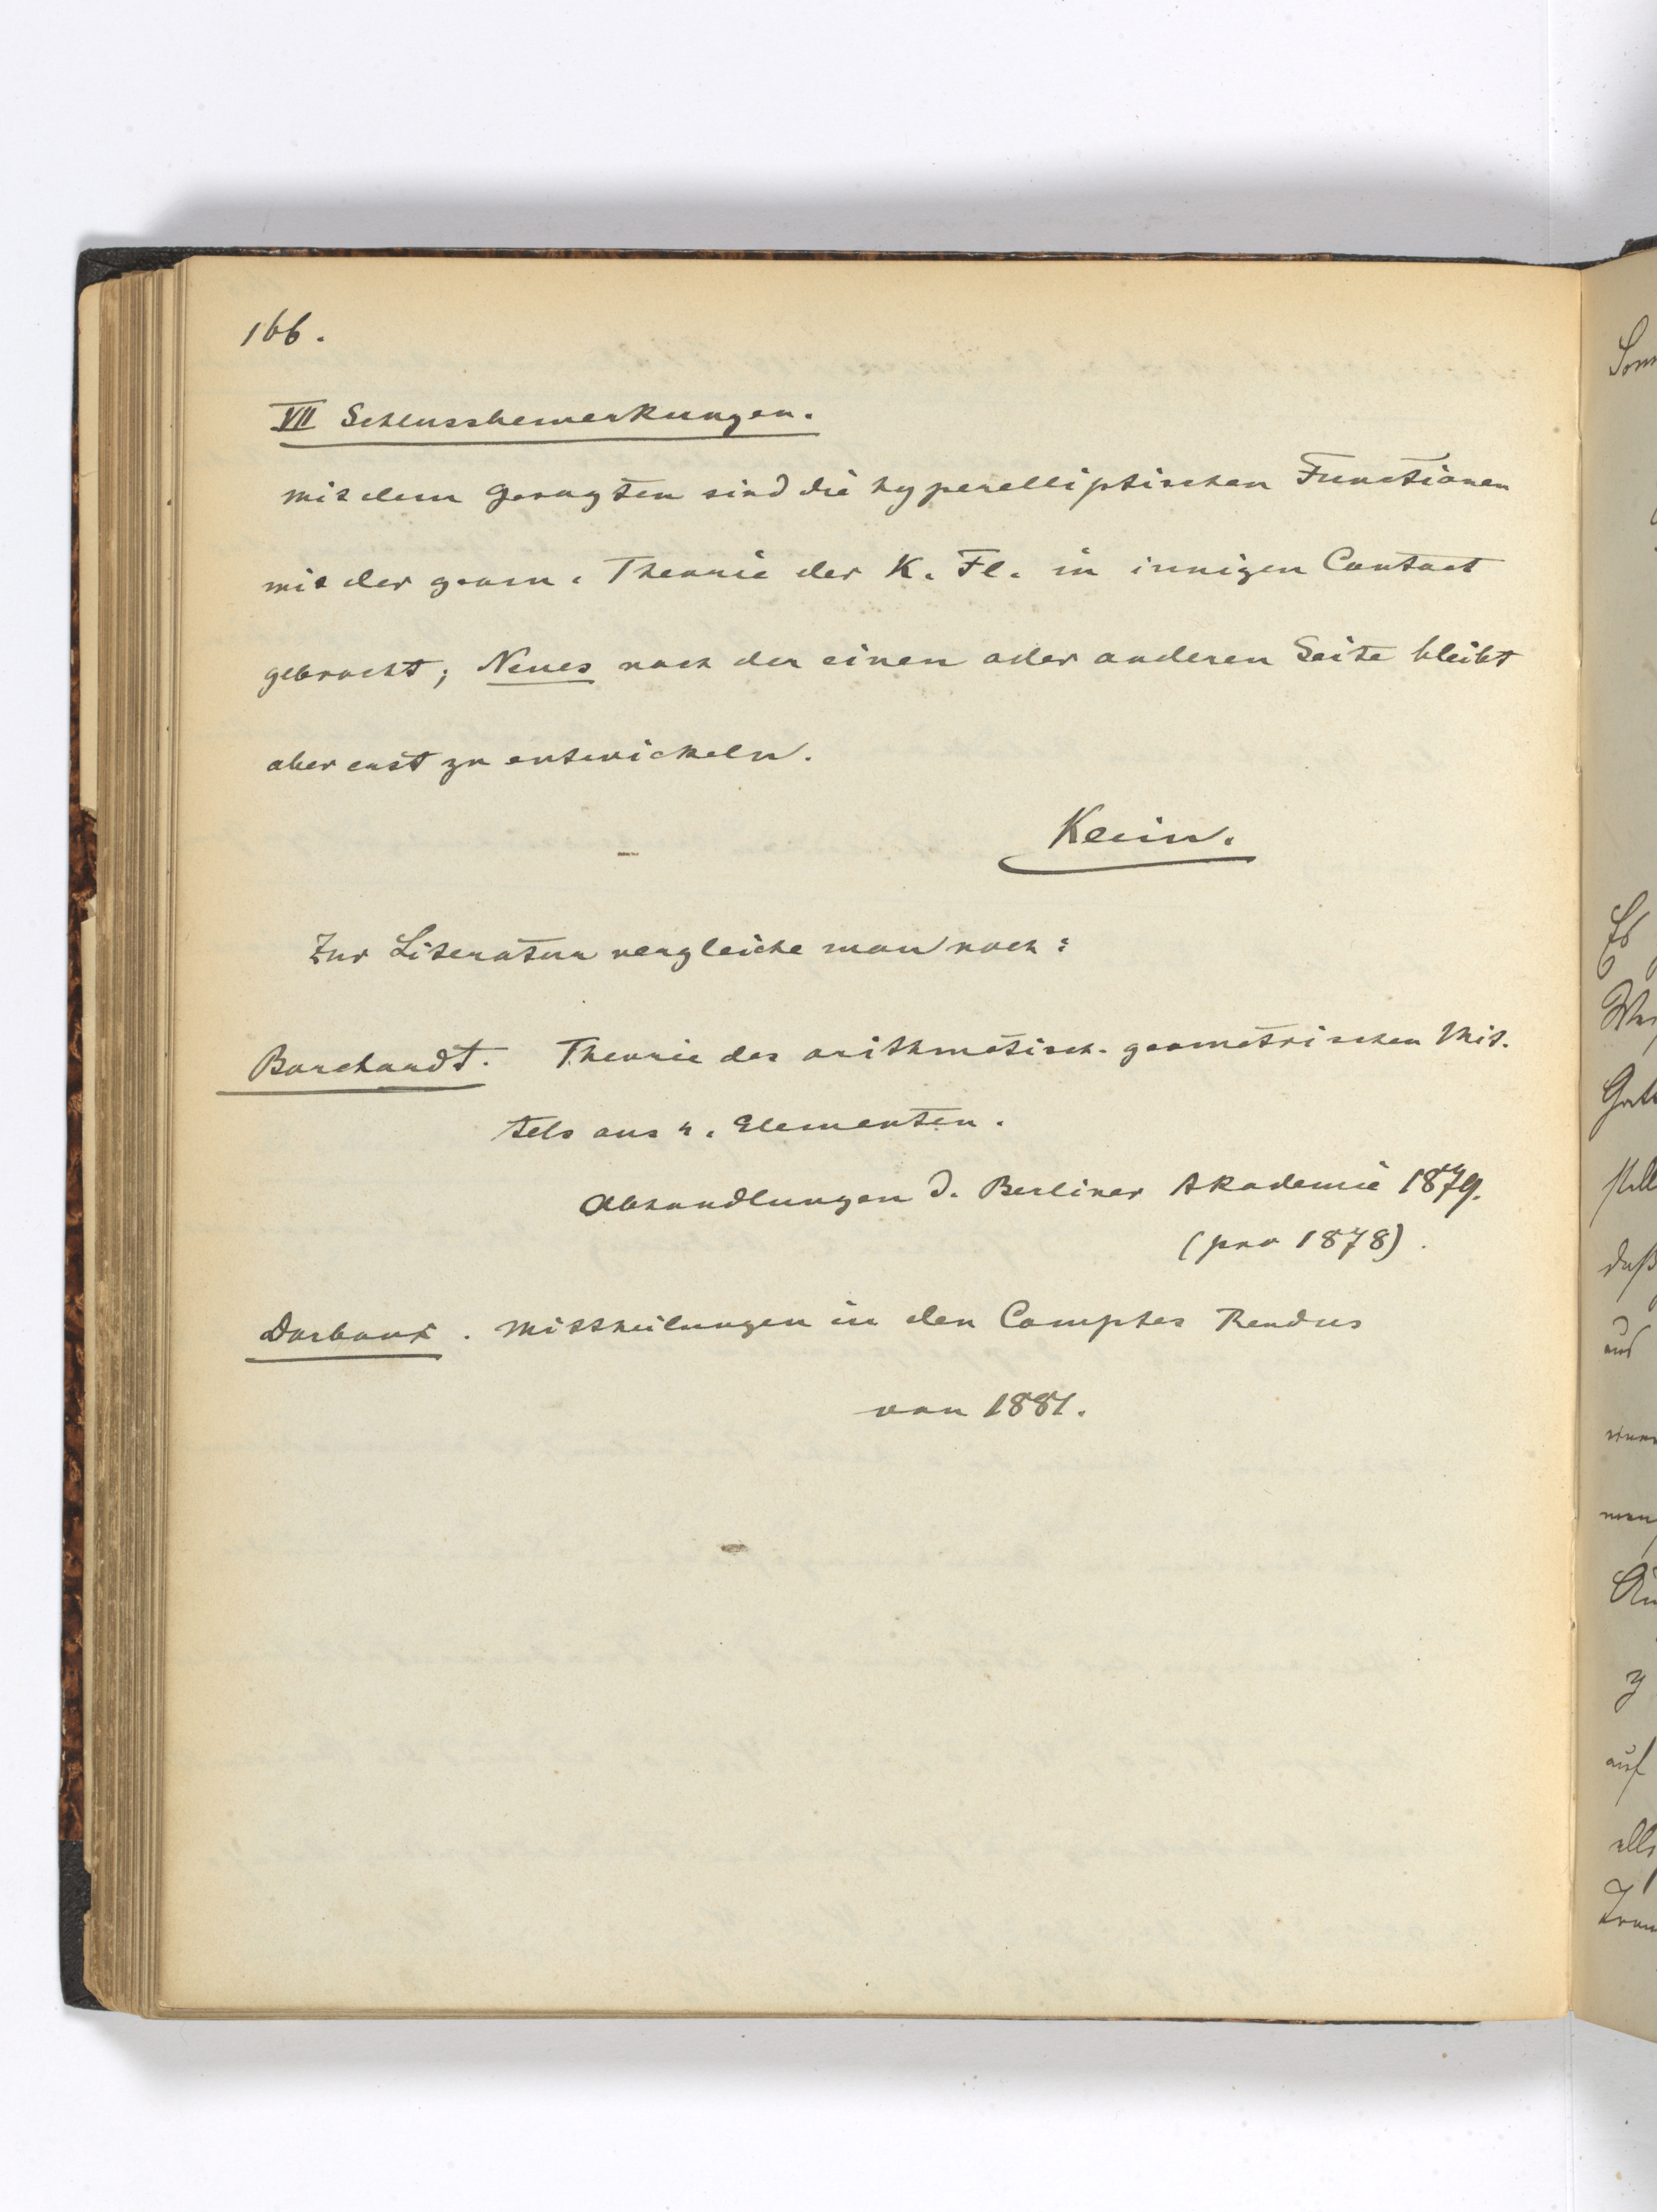 166.
VII Schlussbemerkungen.
Mit dem Gesagten sind die hyperelliptischen Functionen
mit der geom. Theorie der K. Fl. in innigen Contact
gebracht; Neues nach der einen oder anderen Seite bleibt
aber erst zu entwickeln.
Klein.
Zur Literatur vergleiche man noch:
Borchardt. Theorie des arithmetisch-geometrischen Mit-
tels aus 4. Elementen.
Abhandlungen d. Berliner Akademie 1879.
(pro 1878).
Darboux. Mittheilungen in den Comptes Rendus
von 1881.